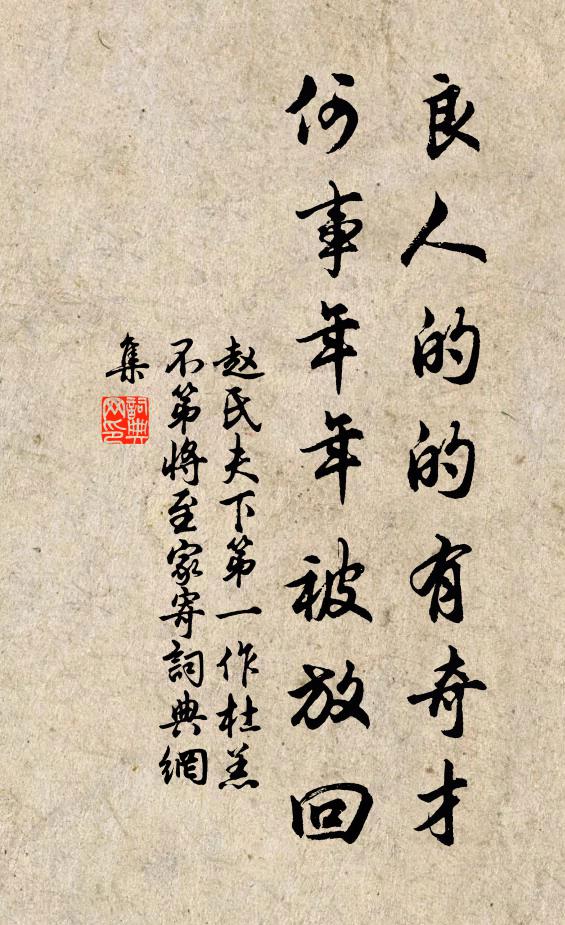 良人的的有奇才
何事年年被放回
赵氏夫下第一作杜羔
不第将至家寄詞典網
集
詞典
网印